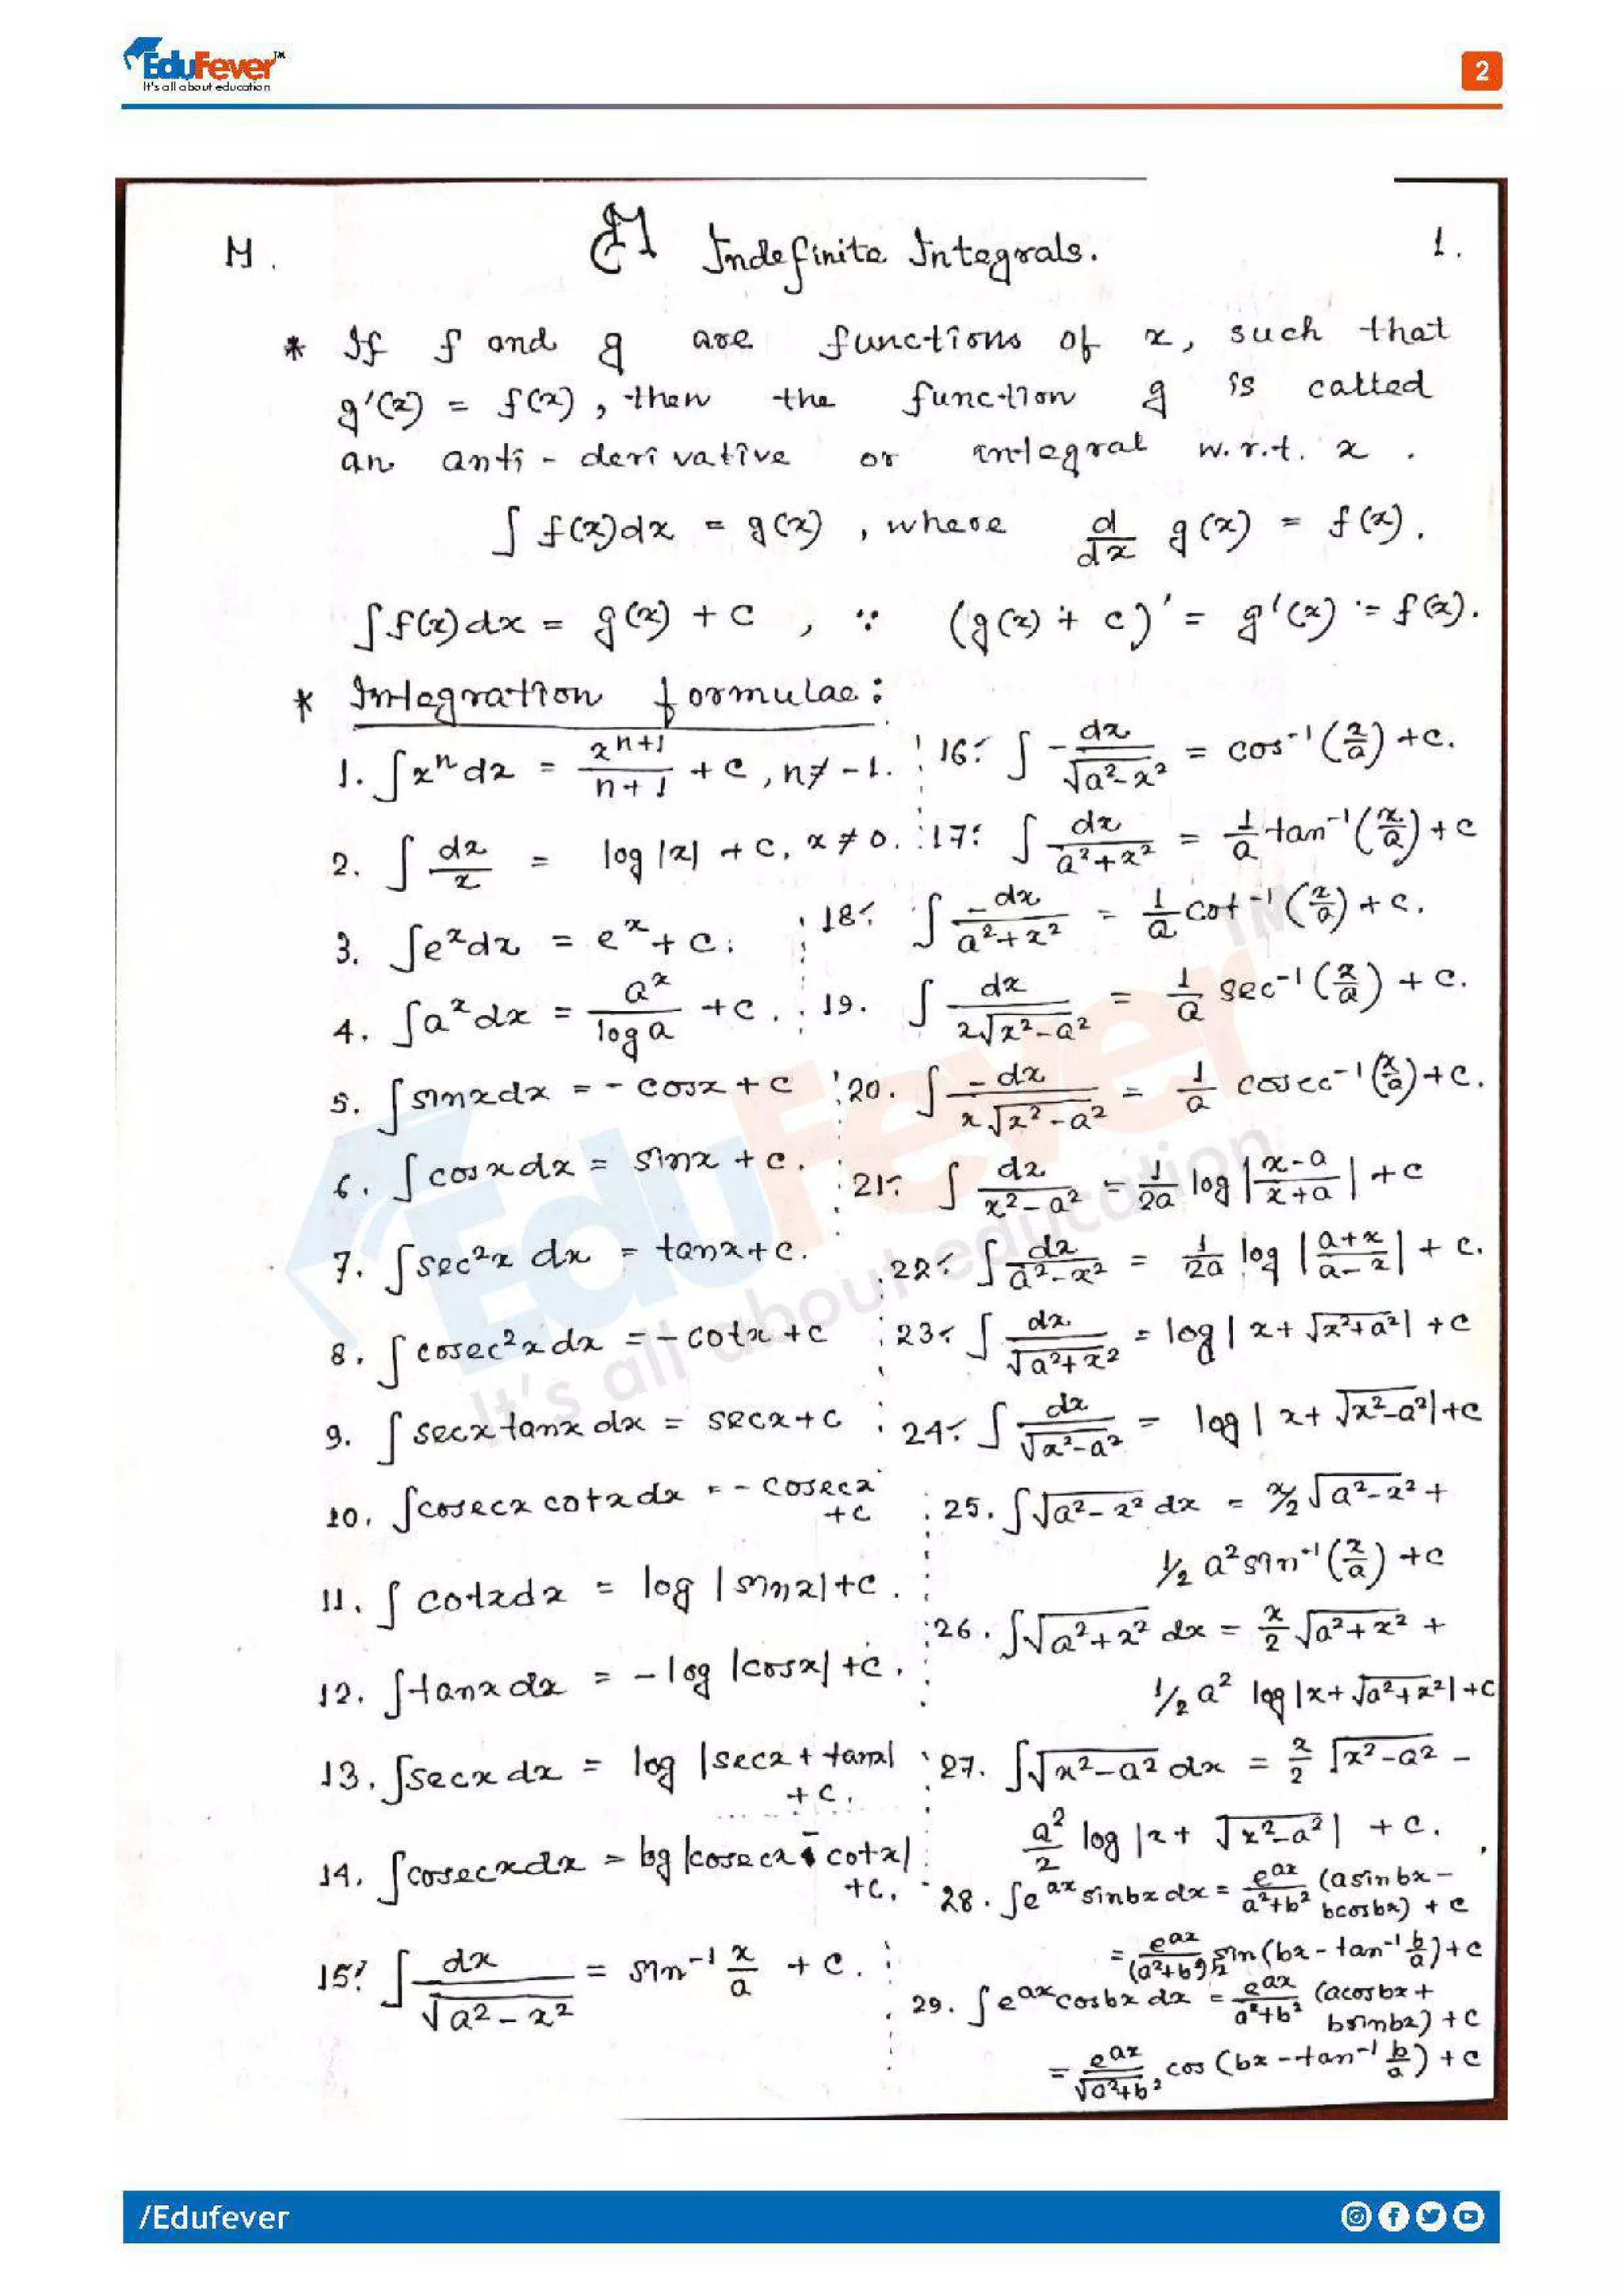 EduFever™
It's all about education
2
M.
Indefinite Integrals.
1.
* If f and g are functions of x, such that
g'(x) = f(x), then the function g is called
an anti - derivative or integral w.r.t. x .
∫ f(x)dx = g(x) , where d/dx g(x) = f(x).
∫f(x)dx = g(x) + c , ∵ (g(x) + c)' = g'(x) = f(x).
* Integration formulae:
1. ∫x^n dx = x^(n+1)/(n+1) + c, n≠-1.
2. ∫ dx/x = log |x| + c, x ≠ 0.
3. ∫e^x dx = e^x + c.
4. ∫a^x dx = a^x/log a + c.
5. ∫ sinx dx = - cosx + c
6. ∫ cosx dx = sinx + c.
7. ∫sec²x dx = tanx + c.
8. ∫ cosec²x dx = - cotx + c
9. ∫ secx tanx dx = secx + c
10. ∫cosecx cotx dx = - cosecx
+c
11. ∫ cotx dx = log |sinx| + c.
12. ∫tanx dx = - log |cosx| + c.
13. ∫secx dx = log |secx + tanx|
+ c.
14. ∫cosecx dx = log |cosecx - cotx|
+c.
15. ∫ dx/√(a² - x²) = sin⁻¹ x/a + c.
16. ∫ - dx/√(a²-x²) = cos⁻¹(x/a) + c.
17. ∫ dx/(a²+x²) = 1/a tan⁻¹(x/a) + c
18. ∫ -dx/(a²+x²) = 1/a cot⁻¹(x/a) + c.
19. ∫ dx/(x√(x²-a²)) = 1/a sec⁻¹(x/a) + c.
20. ∫ -dx/(x√(x²-a²)) = 1/a cosec⁻¹(x/a) + c.
21. ∫ dx/(x²-a²) = 1/2a log |(x-a)/(x+a)| + c
22. ∫ dx/(a²-x²) = 1/2a log |(a+x)/(a-x)| + c.
23. ∫ dx/√(a²+x²) = log | x + √(x²+a²)| + c
24. ∫ dx/√(x²-a²) = log | x + √(x²-a²)| + c
25. ∫√(a²-x²) dx = x/2 √(a²-x²) +
1/2 a² sin⁻¹(x/a) + c
26. ∫√(a²+x²) dx = x/2 √(a²+x²) +
1/2 a² log |x + √(a²+x²)| + c
27. ∫√(x²-a²) dx = x/2 √(x²-a²) -
a²/2 log |x + √(x²-a²)| + c.
28. ∫e^(ax) sinbx dx = e^(ax)/(a²+b²) (a sin bx -
b cos bx) + c
= e^(ax)/(a²+b²)^½ sin(bx - tan⁻¹ b/a) + c
29. ∫e^(ax) cosbx dx = e^(ax)/(a²+b²) (a cos bx +
b sin bx) + c
= e^(ax)/√(a²+b²) cos (bx - tan⁻¹ b/a) + c
EduFever™
It's all about education
/Edufever